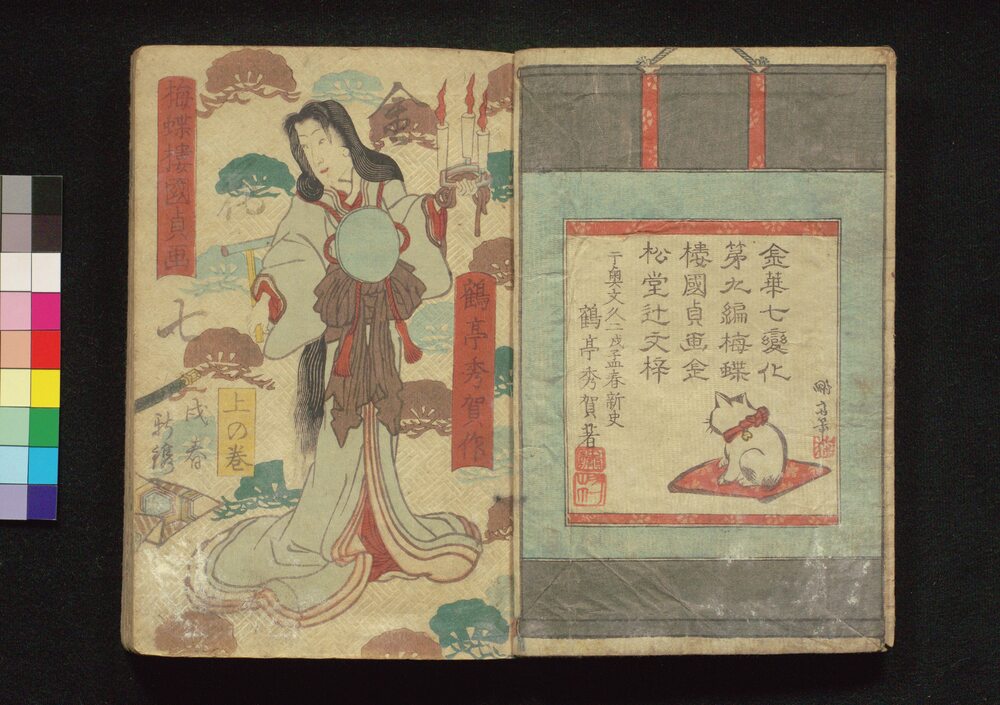 金華七變化
第九編梅蝶
樓國貞画全
松堂辻文梓
于奥文久二戌孟春新史
鶴亭秀賀著
梅蝶樓國貞画
鶴亭秀賀作
金
花
七
上の巻
戌春
新鐫